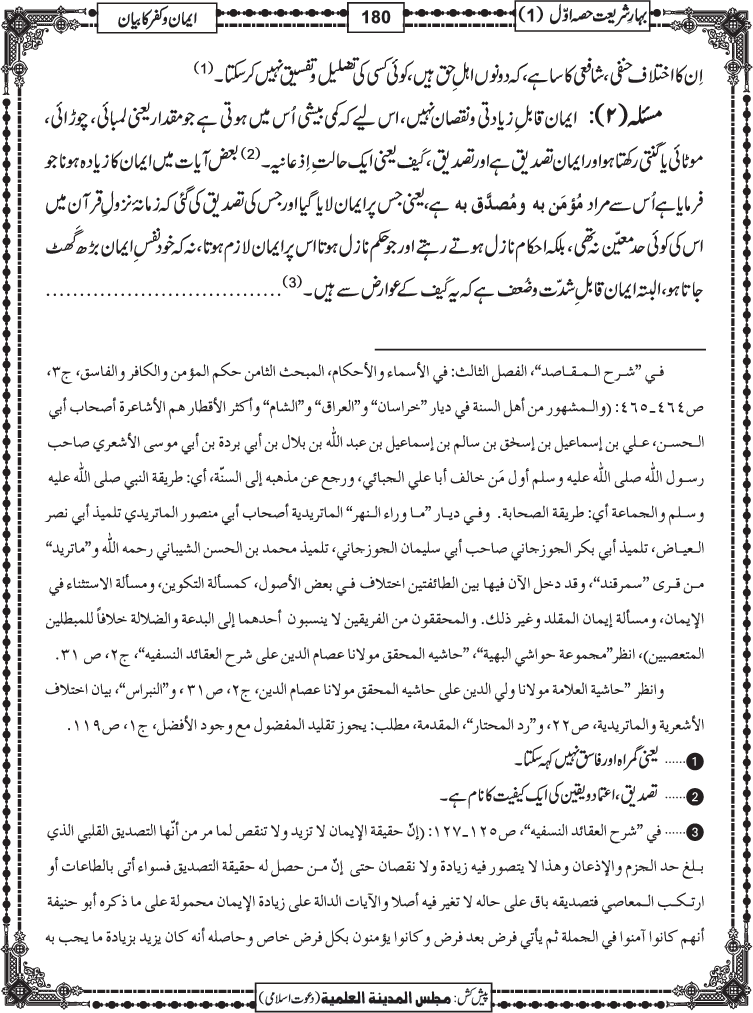 بہارِ شریعت حصہ اوّل (1)
180
ایمان و کفر کا بیان
اِن کا اختلاف حنفی، شافعی کا سا ہے، کہ دونوں اہلِ حق ہیں، کوئی کسی کی تضلیل و تفسیق نہیں کرسکتا۔(1)
مسئلہ (۲): ایمان قابلِ زیادتی و نقصان نہیں، اس لیے کہ کمی بیشی اُس میں ہوتی ہے جو مقدار یعنی لمبائی، چوڑائی،
موٹائی یا گنتی رکھتا ہو اور ایمان تصدیق ہے اور تصدیق، کَیف یعنی ایک حالتِ اِذعانیہ۔(2) بعض آیات میں ایمان کا زیادہ ہونا جو
فرمایا ہے اُس سے مراد مُؤمَن بہ و مُصدَّق بہ ہے، یعنی جس پر ایمان لایا گیا اور جس کی تصدیق کی گئی کہ زمانۂ نزولِ قرآن میں
اس کی کوئی حد معیّن نہ تھی، بلکہ احکام نازل ہوتے رہتے اور جو حکم نازل ہوتا اس پر ایمان لازم ہوتا، نہ کہ خود نفسِ ایمان بڑھ گھٹ
جاتا ہو، البتہ ایمان قابلِ شدّت و ضُعف ہے کہ یہ کَیف کے عوارض سے ہیں۔(3)...................................
فـي ”شـرح الـمـقـاصد“، الفصل الثالث: في الأسماء والأحكام، المبحث الثامن حكم المؤمن والكافر والفاسق، ج٣،
ص٤٦٤ـ٤٦٥: (والـمشهور من أهل السنة في ديار ”خراسان“ و”العراق“ و”الشام“ وأكثر الأقطار هم الأشاعرة أصحاب أبي
الـحسـن، عـلي بن إسماعيل بن إسحٰق بن سالم بن إسماعيل بن عبد اللّٰه بن بلال بن أبي بردة بن أبي موسى الأشعري صاحب
رسـول اللّٰه صلى اللّٰه عليه وسلم أول مَن خالف أبا علي الجبائي، ورجع عن مذهبه إلى السنّة، أي: طريقة النبي صلى اللّٰه عليه
وسـلم والجماعة أي: طريقة الصحابة. وفـي ديـار ”مـا وراء الـنهر“ الماتريدية أصحاب أبي منصور الماتريدي تلميذ أبي نصر
الـعيـاض، تلميذ أبي بكر الجوزجاني صاحب أبي سليمان الجوزجاني، تلميذ محمد بن الحسن الشيباني رحمه اللّٰه و”ماتريد“
مـن قـرى ”سمرقند“، وقد دخل الآن فيها بين الطائفتين اختلاف فـي بعض الأصول، كمسألة التكوين، ومسألة الاستثناء في
الإيمان، ومسألة إيمان المقلد وغير ذلك. والمحققون من الفريقين لا ينسبون أحدهما إلى البدعة والضلالة خلافاً للمبطلين
المتعصبين)، انظر ”مجموعة حواشي البهية“، ”حاشيه المحقق مولانا عصام الدين على شرح العقائد النسفيه“، ج٢، ص ٣١.
وانظر ”حاشية العلامة مولانا ولي الدين على حاشيه المحقق مولانا عصام الدين، ج٢، ص٣١، و”النبراس“، بيان اختلاف
الأشعرية والماتريدية، ص٢٢، و”رد المحتار“، المقدمة، مطلب: يجوز تقليد المفضول مع وجود الأفضل، ج١، ص١١٩.
1...... یعنی گمراہ اور فاسق نہیں کہہ سکتا۔
2...... تصدیق، اعتماد و یقین کی ایک کیفیت کا نام ہے۔
3...... في ”شرح العقائد النسفيه“، ص١٢٥ـ١٢٧: (إنّ حقيقة الإيمان لا تزيد ولا تنقص لما مر من أنّها التصديق القلبي الذي
بـلغ حد الجزم والإذعان وهذا لا يتصور فيه زيادة ولا نقصان حتى إنّ مـن حصل له حقيقة التصديق فسواء أتى بالطاعات أو
ارتـكـب الـمعاصي فتصديقه باق على حاله لا تغير فيه أصلا والآيات الدالة على زيادة الإيمان محمولة على ما ذكره أبو حنيفة
أنهم كانوا آمنوا في الجملة ثم يأتي فرض بعد فرض وكانوا يؤمنون بكل فرض خاص وحاصله أنه كان يزيد بزيادة ما يجب به
پیش کش: مجلس المدينة العلمية (دعوتِ اسلامی)